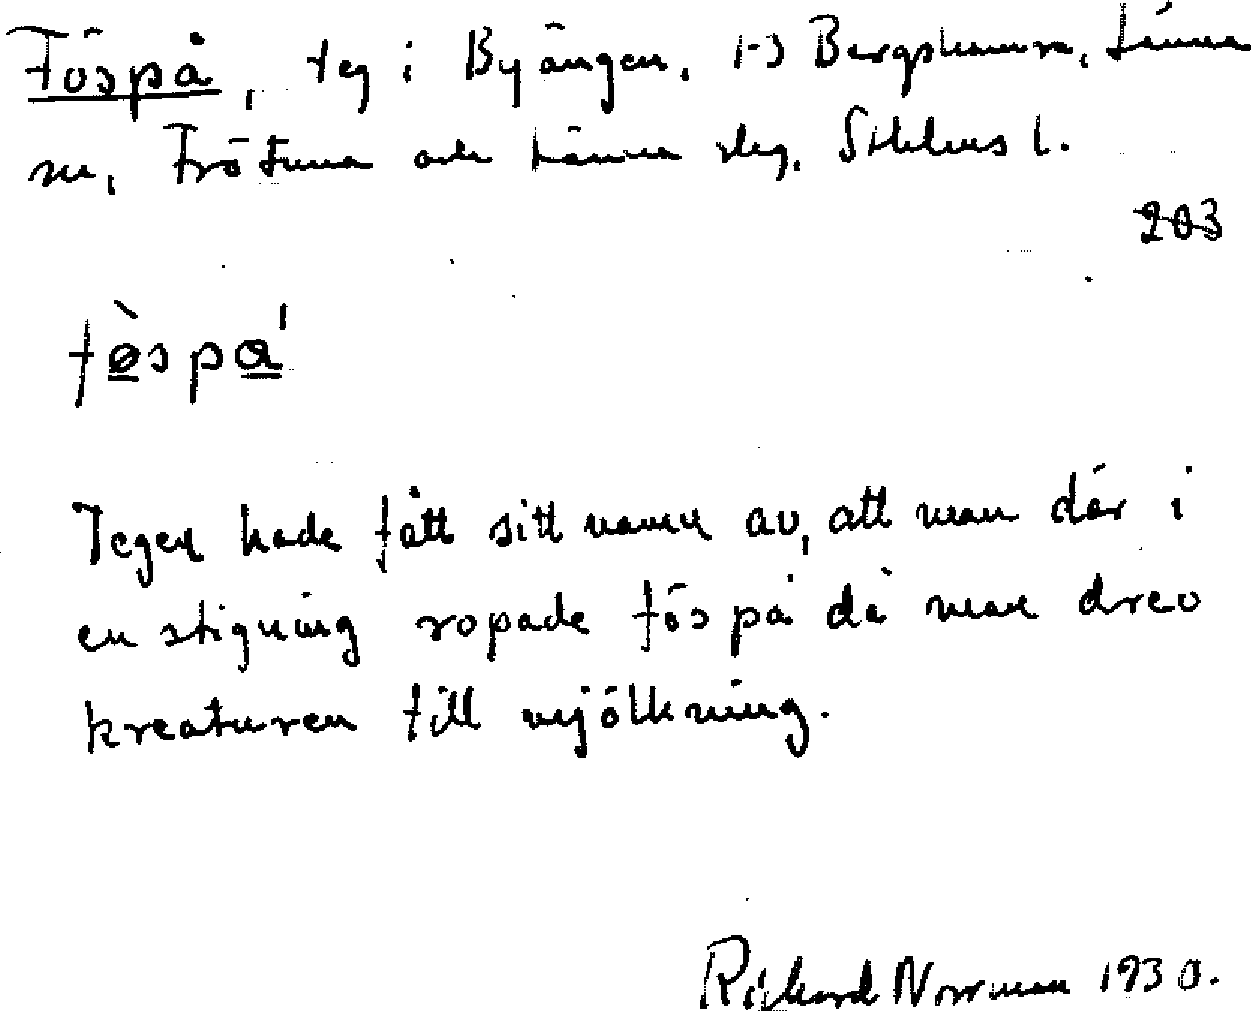 Föspå, teg i Byängen, 1-3 Bergshamra, Länna
sn, Frötuna och Länna slg, Sthlms l.
203
fø̀spa'
Tegen hade fått sitt namn av, att man där i
en stigning ropade fös på då man drev
kreaturen till mjölkning.
Rickard Norrman 1930.